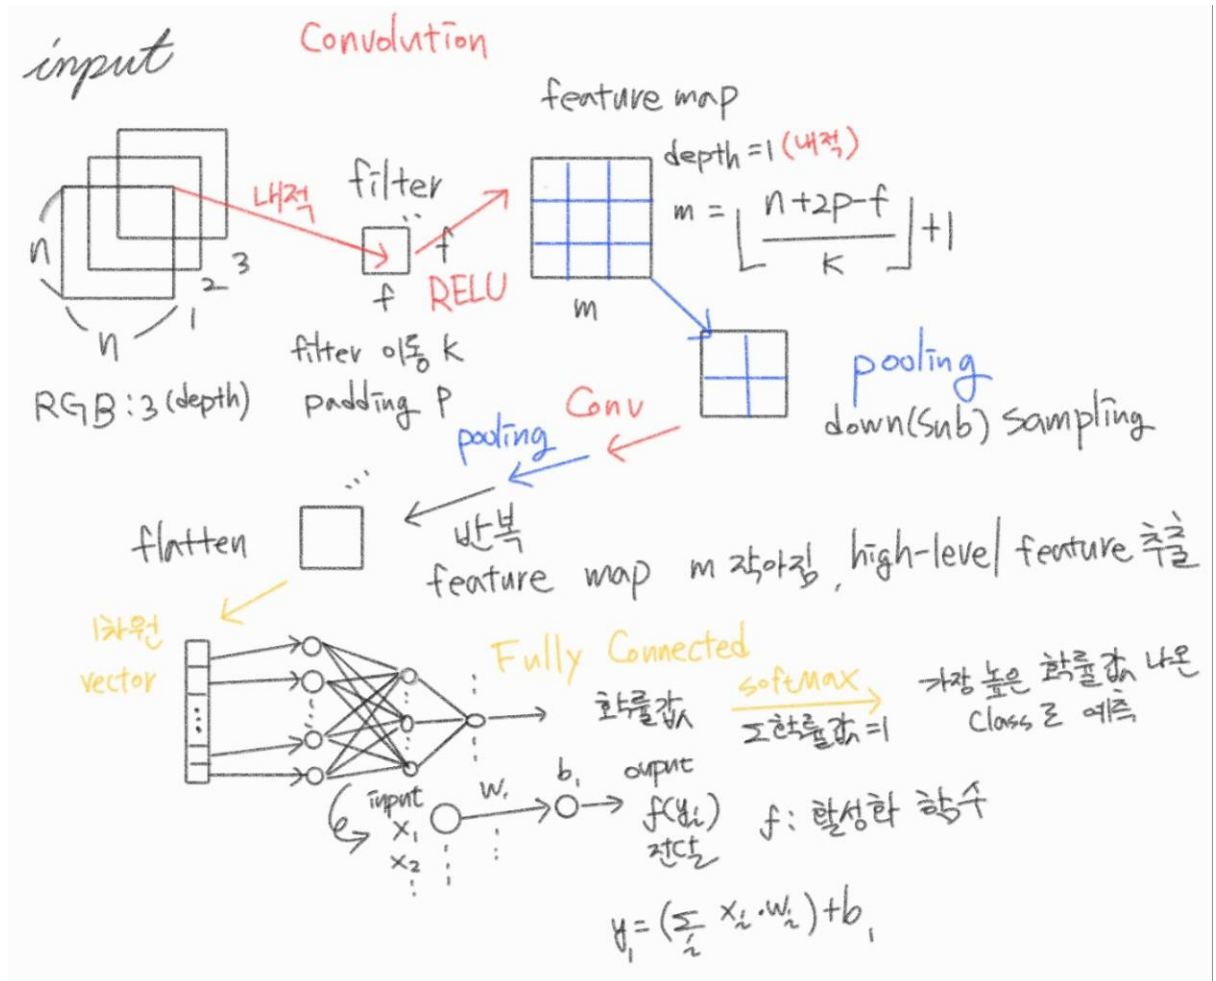 input
Convolution
feature map
depth = 1 (내적)
m = ⌊ n+2p-f / K ⌋ + 1
filter
내적
f
f
RELU
m
n
n
1
2
3
RGB : 3 (depth)
filter 이동 K
padding P
pooling
down(sub) sampling
Conv
pooling
반복
feature map m 작아짐, high-level feature 추출
flatten
1차원
vector
Fully Connected
확률값
softmax
Σ확률값=1
가장 높은 확률값 나온
Class로 예측
input
x₁
x₂
w₁
b₁
ouput
f(yᵢ)
전달
f : 활성화 함수
y₁ = (Σᵢ xᵢ·wᵢ) + b₁